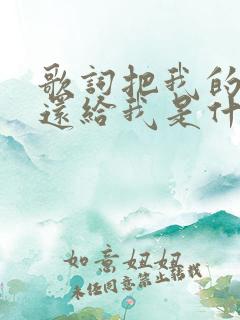 歌詞把我的
還給我是什
如意妞妞
未经同意禁止转载